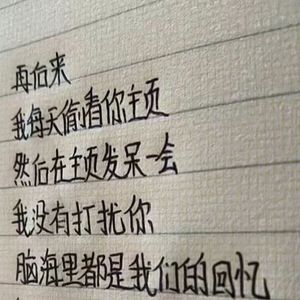 再后来
我每天偷看你主页
然后在主页发呆一会
我没有打扰你
脑海里都是我们的回忆